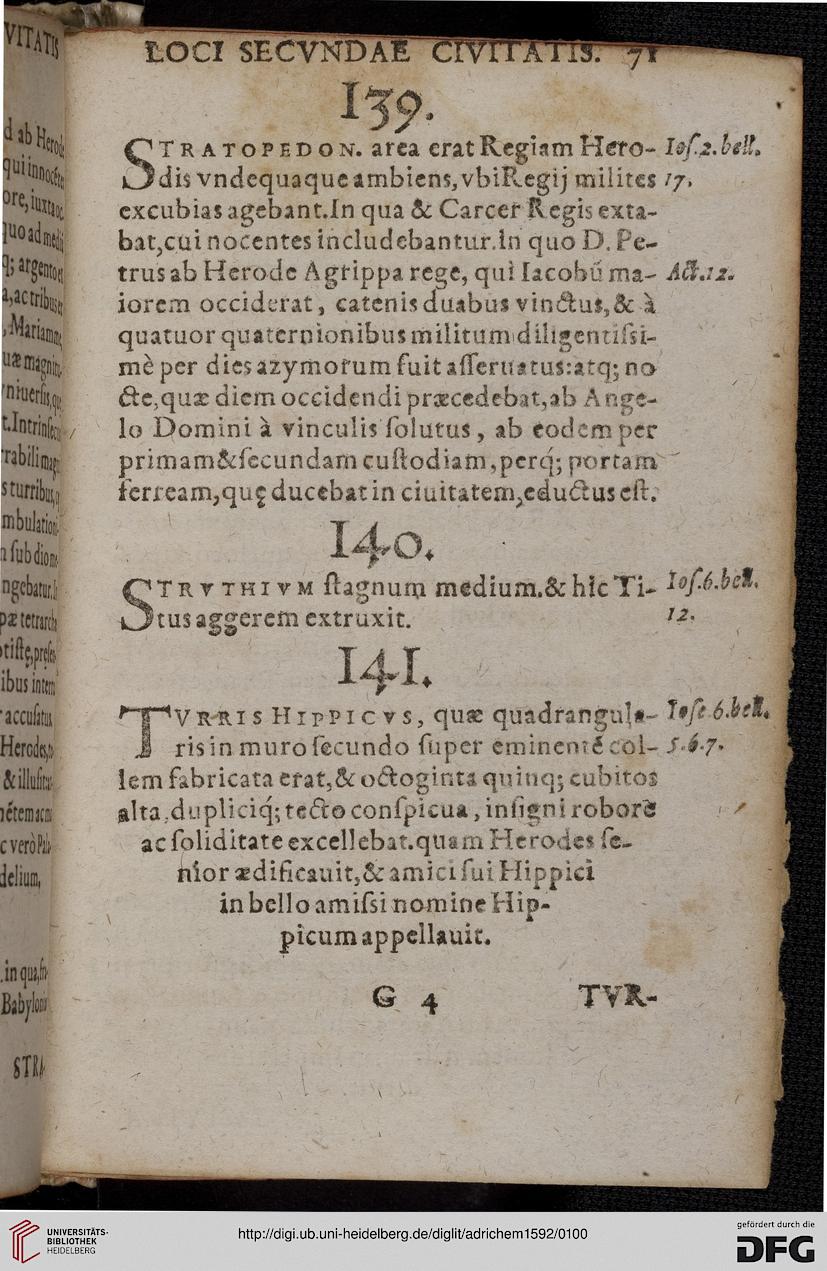 LOCI SECVNDAE CIVITATIS. 71
139.
STRATOPEDON. area erat Regiam Hero- Ios.2.bell.
dis vndequaque ambiens, vbi Regij milites 17.
excubias agebant. In qua & Carcer Regis exta-
bat, cui nocentes includebantur. In quo D. Pe-
trus ab Herode Agrippa rege, qui Iacobū ma- Act.12.
iorem occiderat, catenis duabus vinctus, & à
quatuor quaternionibus militum diligentiſsi-
mè per dies azymorum fuit aſſeruatus: atq; no
cte, quæ diem occidendi præcedebat, ab Ange-
lo Domini à vinculis ſolutus, ab eodem per
primam & ſecundam cuſtodiam, perq́; portam
ferream, quę ducebat in ciuitatem, eductus eſt.
140.
STRVTHIVM ſtagnum medium. & hic Ti- Ioſ.6.bell.
tus aggerem extruxit. 12.
141.
TVRRIS HIPPICVS, quæ quadrangula- Ioſe.6.bell.
ris in muro ſecundo ſuper eminentē col- 5.6.7.
lem fabricata erat, & octoginta quinq; cubitos
alta, dupliciq́; tecto conſpicua, inſigni robore
ac ſoliditate excellebat. quam Herodes ſe-
nior ædificauit, & amici ſui Hippici
in bello amiſsi nomine Hip-
picum appellauit.
G 4 TVR-
VITATIS
d ab Herod
qui innocēte
ore, iuxta
quo ad medi
q; argento
a, ac tribus
, Mariam
uæ magni
niuerſis, qu
t. Intrinſec
rabili mag
s turribus,
mbulation
n ſub dio
ngebatur.
pæ tetrarch
tiſtę, preſes
ibus intem
accuſatus
Herodes,
& illuſus
c verò Pala
delium,
. in qua,
Babylonis
STRA-
UNIVERSITÄTS-
BIBLIOTHEK
HEIDELBERG
http://digi.ub.uni-heidelberg.de/diglit/adrichem1592/0100
gefördert durch die
DFG